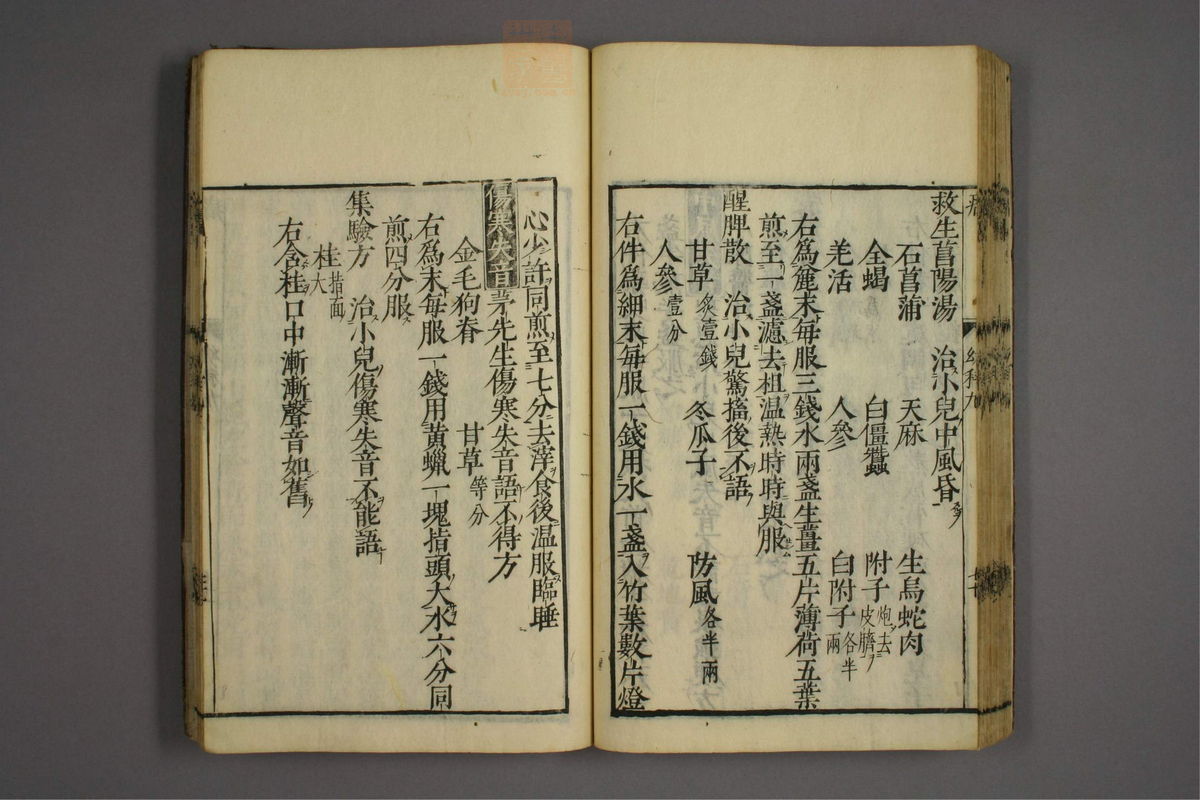 救生菖陽湯　治小兒中風昏
石菖蒲　天麻　生烏蛇肉
全蝎　白僵蠶　附子炮去皮臍
羌活　人參　白附子各半兩
右爲麄末每服三錢水兩盞生薑五片薄荷五葉
煎至一盞濾去柤温熱時時與服
醒脾散　治小兒驚搐後不語
甘草炙壹錢　冬瓜子　防風各半兩
人參壹分
右件爲細末每服一錢用水一盞入竹葉數片燈
心少許同煎至七分去滓食後温服臨睡
傷寒失音茅先生傷寒失音語不得方
金毛狗脊　甘草等分
右爲末每服一錢用黄蝋一塊指頭大水六分同
煎四分服
集驗方　治小兒傷寒失音不能語
桂大指面
右含桂口中漸漸聲音如舊